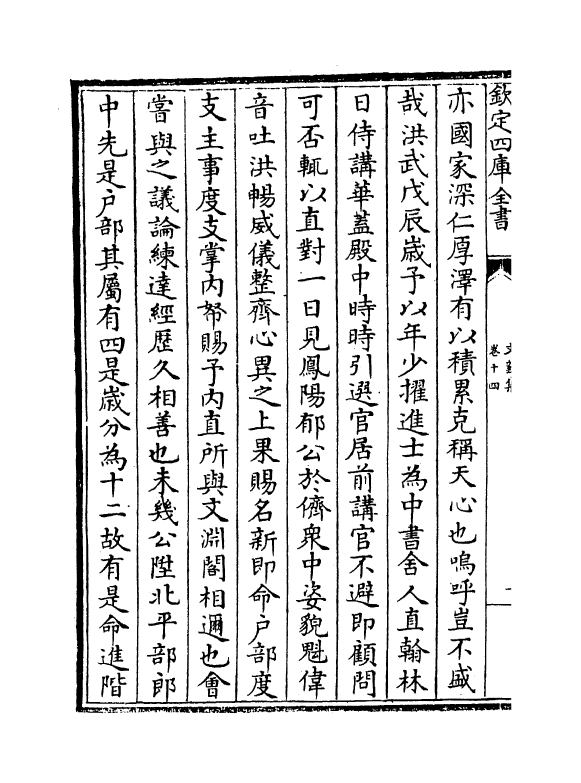 欽定四庫全書
卷十四
亦國家深仁厚澤有以積累克稱天心也嗚呼豈不盛
哉洪武戊辰歳予以年少擢進士為中書舍人直翰林
日侍講華蓋殿中時時引選官居前講官不避即顧問
可否輒以直對一日見鳳陽郁公於儕衆中姿貌魁偉
音吐洪暢威儀整齊心異之上果賜名新即命户部度
支主事度支掌内帑賜予内直所與文淵閣相邇也㑹
嘗與之議論練達經歴久相善也未幾公陞北平部郎
中先是户部其屬有四是歳分為十二故有是命進階